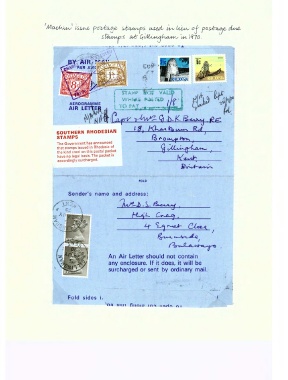 'Machin' issue postage stamps used in lieu of postage due
stamps at Gillingham in 1970.
BY AIR MAIL
PAR AVION
AEROGRAMME
AIR LETTER
STAMP NOT VALID
WHERE POSTED
TO PAY
Berry RE
18, Rd
Brompton,
Gillingham,
Kent,
Britain
SOUTHERN RHODESIAN
STAMPS
The Government has announced
that stamps issued in Rhodesia of
the kind used on this postal packet
have no legal basis. The packet is
accordingly surcharged.
Sender's name and address:
Mr D.S. Berry
High Craig,
4 Close,
Burnside,
Bulawayo
An Air Letter should not contain
any enclosure. If it does, it will be
surcharged or sent by ordinary mail.
Fold sides i